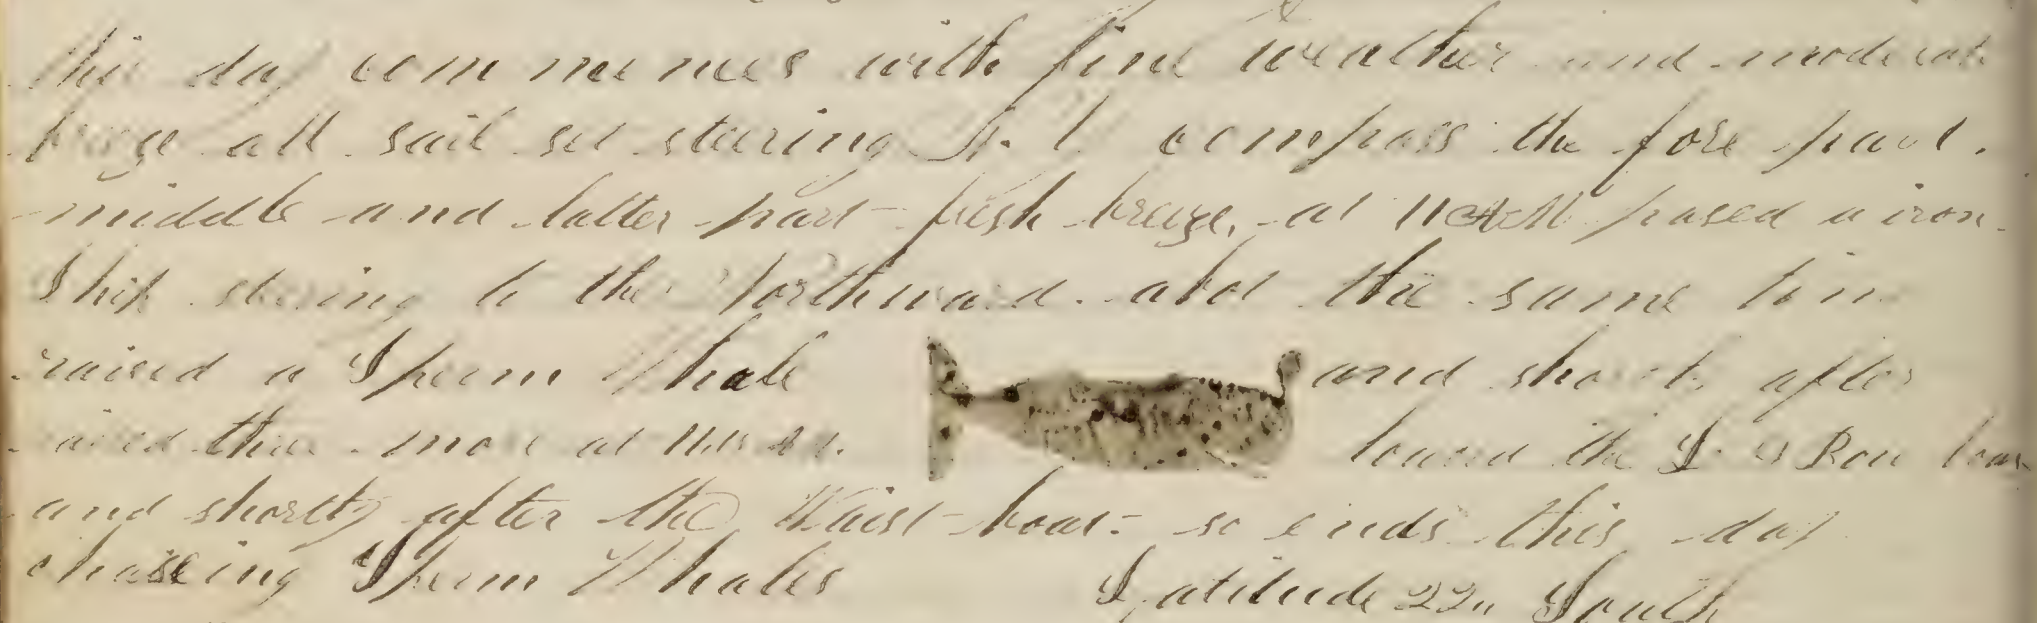 this day commences with fine weather and moderate
breeze all sail set steering by compass the fore part.
middle and latter part fresh breeze, at 11 AM pased a iron
Ship stering to the Northward. abot the same tim
raised a Sperm Whale and shortly after
raised three more at loared the Bow boat
and shortly after the Waist boat so ends this day
chaseing Sperm Whales Latitude 22 South